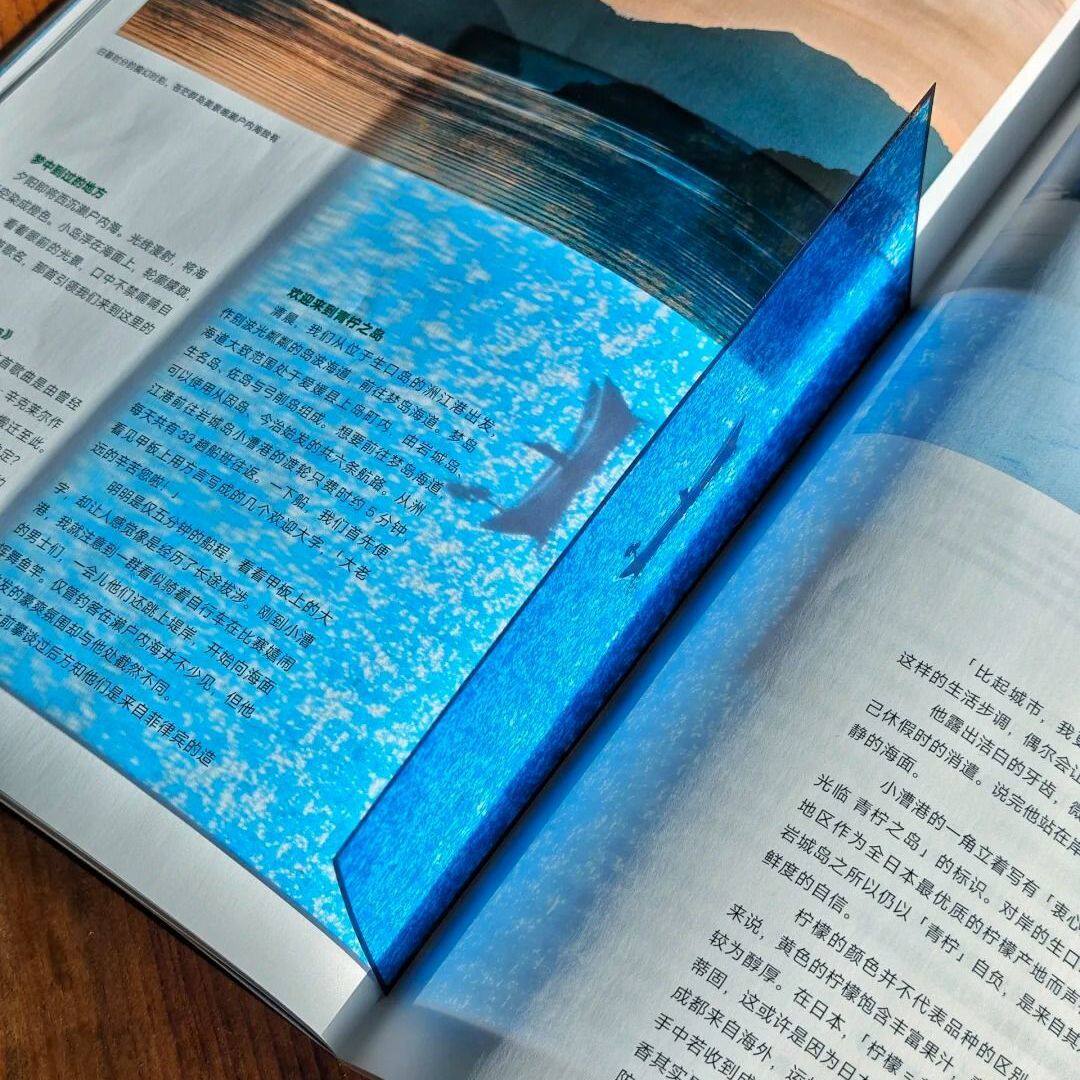 日暮时分的魔幻时刻，苍茫群岛美景唯濑户内海独有
梦中到过的地方
夕阳即将西沉濑户内海。光线漫射，将海
空染成橙色。小岛浮在海面上，轮廓朦胧，
看着眼前的光景，口中不禁喃喃自
歌名，那首引领我们来到这里的
首歌曲是由曾经
辛克莱尔作
搬迁至此。
定？
欢迎来到青柠之岛
清晨，我们从位于生口岛的洲江港出发，
作别波光粼粼的岛波海道，前往梦岛海道。梦岛
海道大致范围处于爱媛县上岛町内，由岩城岛、
生名岛、佐岛与弓削岛组成。想要前往梦岛海道，
可以使用从因岛、今治始发的共六条航路。从洲
江港前往岩城岛小漕港的渡轮只费时约 5 分钟，
每天共有 33 趟船班往返。一下船，我们首先便
看见甲板上用方言写成的几个欢迎大字，「大老
远的辛苦您啦！」
明明是仅五分钟的船程，看着甲板上的大
字，却让人感觉像是经历了长途跋涉。刚到小漕
港，我就注意到一群看似骑着自行车在比赛嬉闹
的男士们，一会儿他们还跳上堤岸，开始向海面
挥舞鱼竿。仅管钓客在濑户内海并不少见，但他
发的豪爽氛围却与他处截然不同。
前攀谈过后方知他们是来自菲律宾的造
「比起城市，我
这样的生活步调，偶尔会让
他露出洁白的牙齿，微
己休假时的消遣。说完他站在岸
静的海面。
小漕港的一角立着写有「衷心
光临 青柠之岛」的标识。对岸的生口
地区作为全日本最优质的柠檬产地而声
岩城岛之所以仍以「青柠」自负，是来自其
鲜度的自信。
柠檬的颜色并不代表品种的区别
来说，黄色的柠檬饱含丰富果汁，
较为醇厚。在日本，「柠檬
蒂固，这或许是因为日本
成都来自海外，运
手中若收到成
香其实